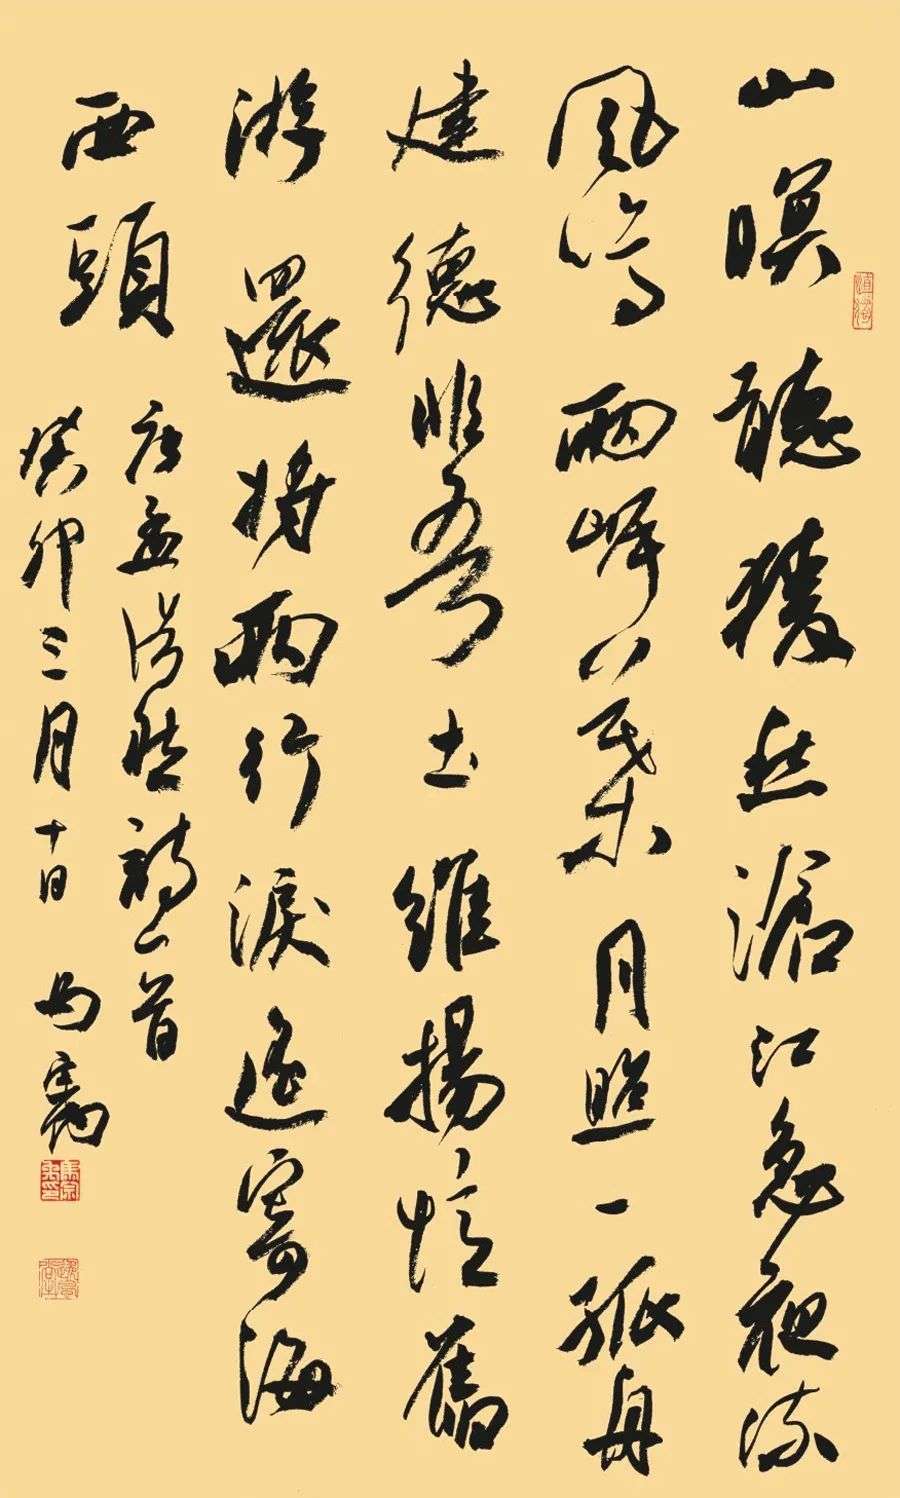 山暝聽猿愁滄江急夜流
風鳴兩岸葉月照一孤舟
建德非吾土維揚憶舊
游還將兩行淚遙寄海
西頭
唐孟浩然詩一首
癸卯三月十日